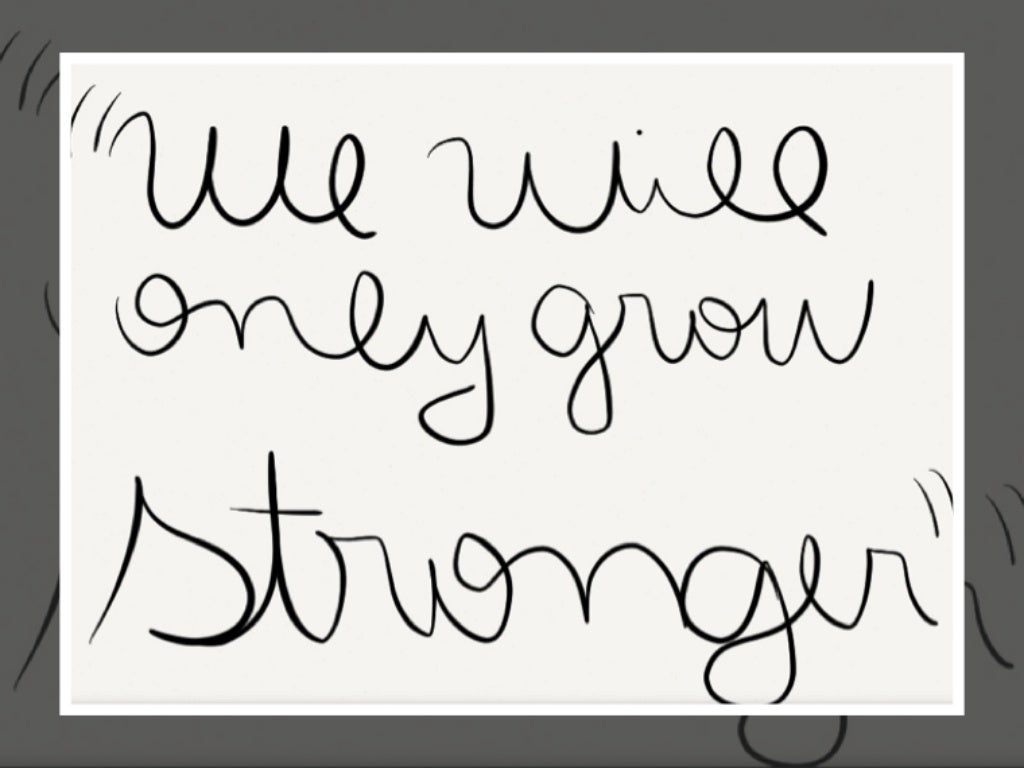 "We will
only grow
stronger"